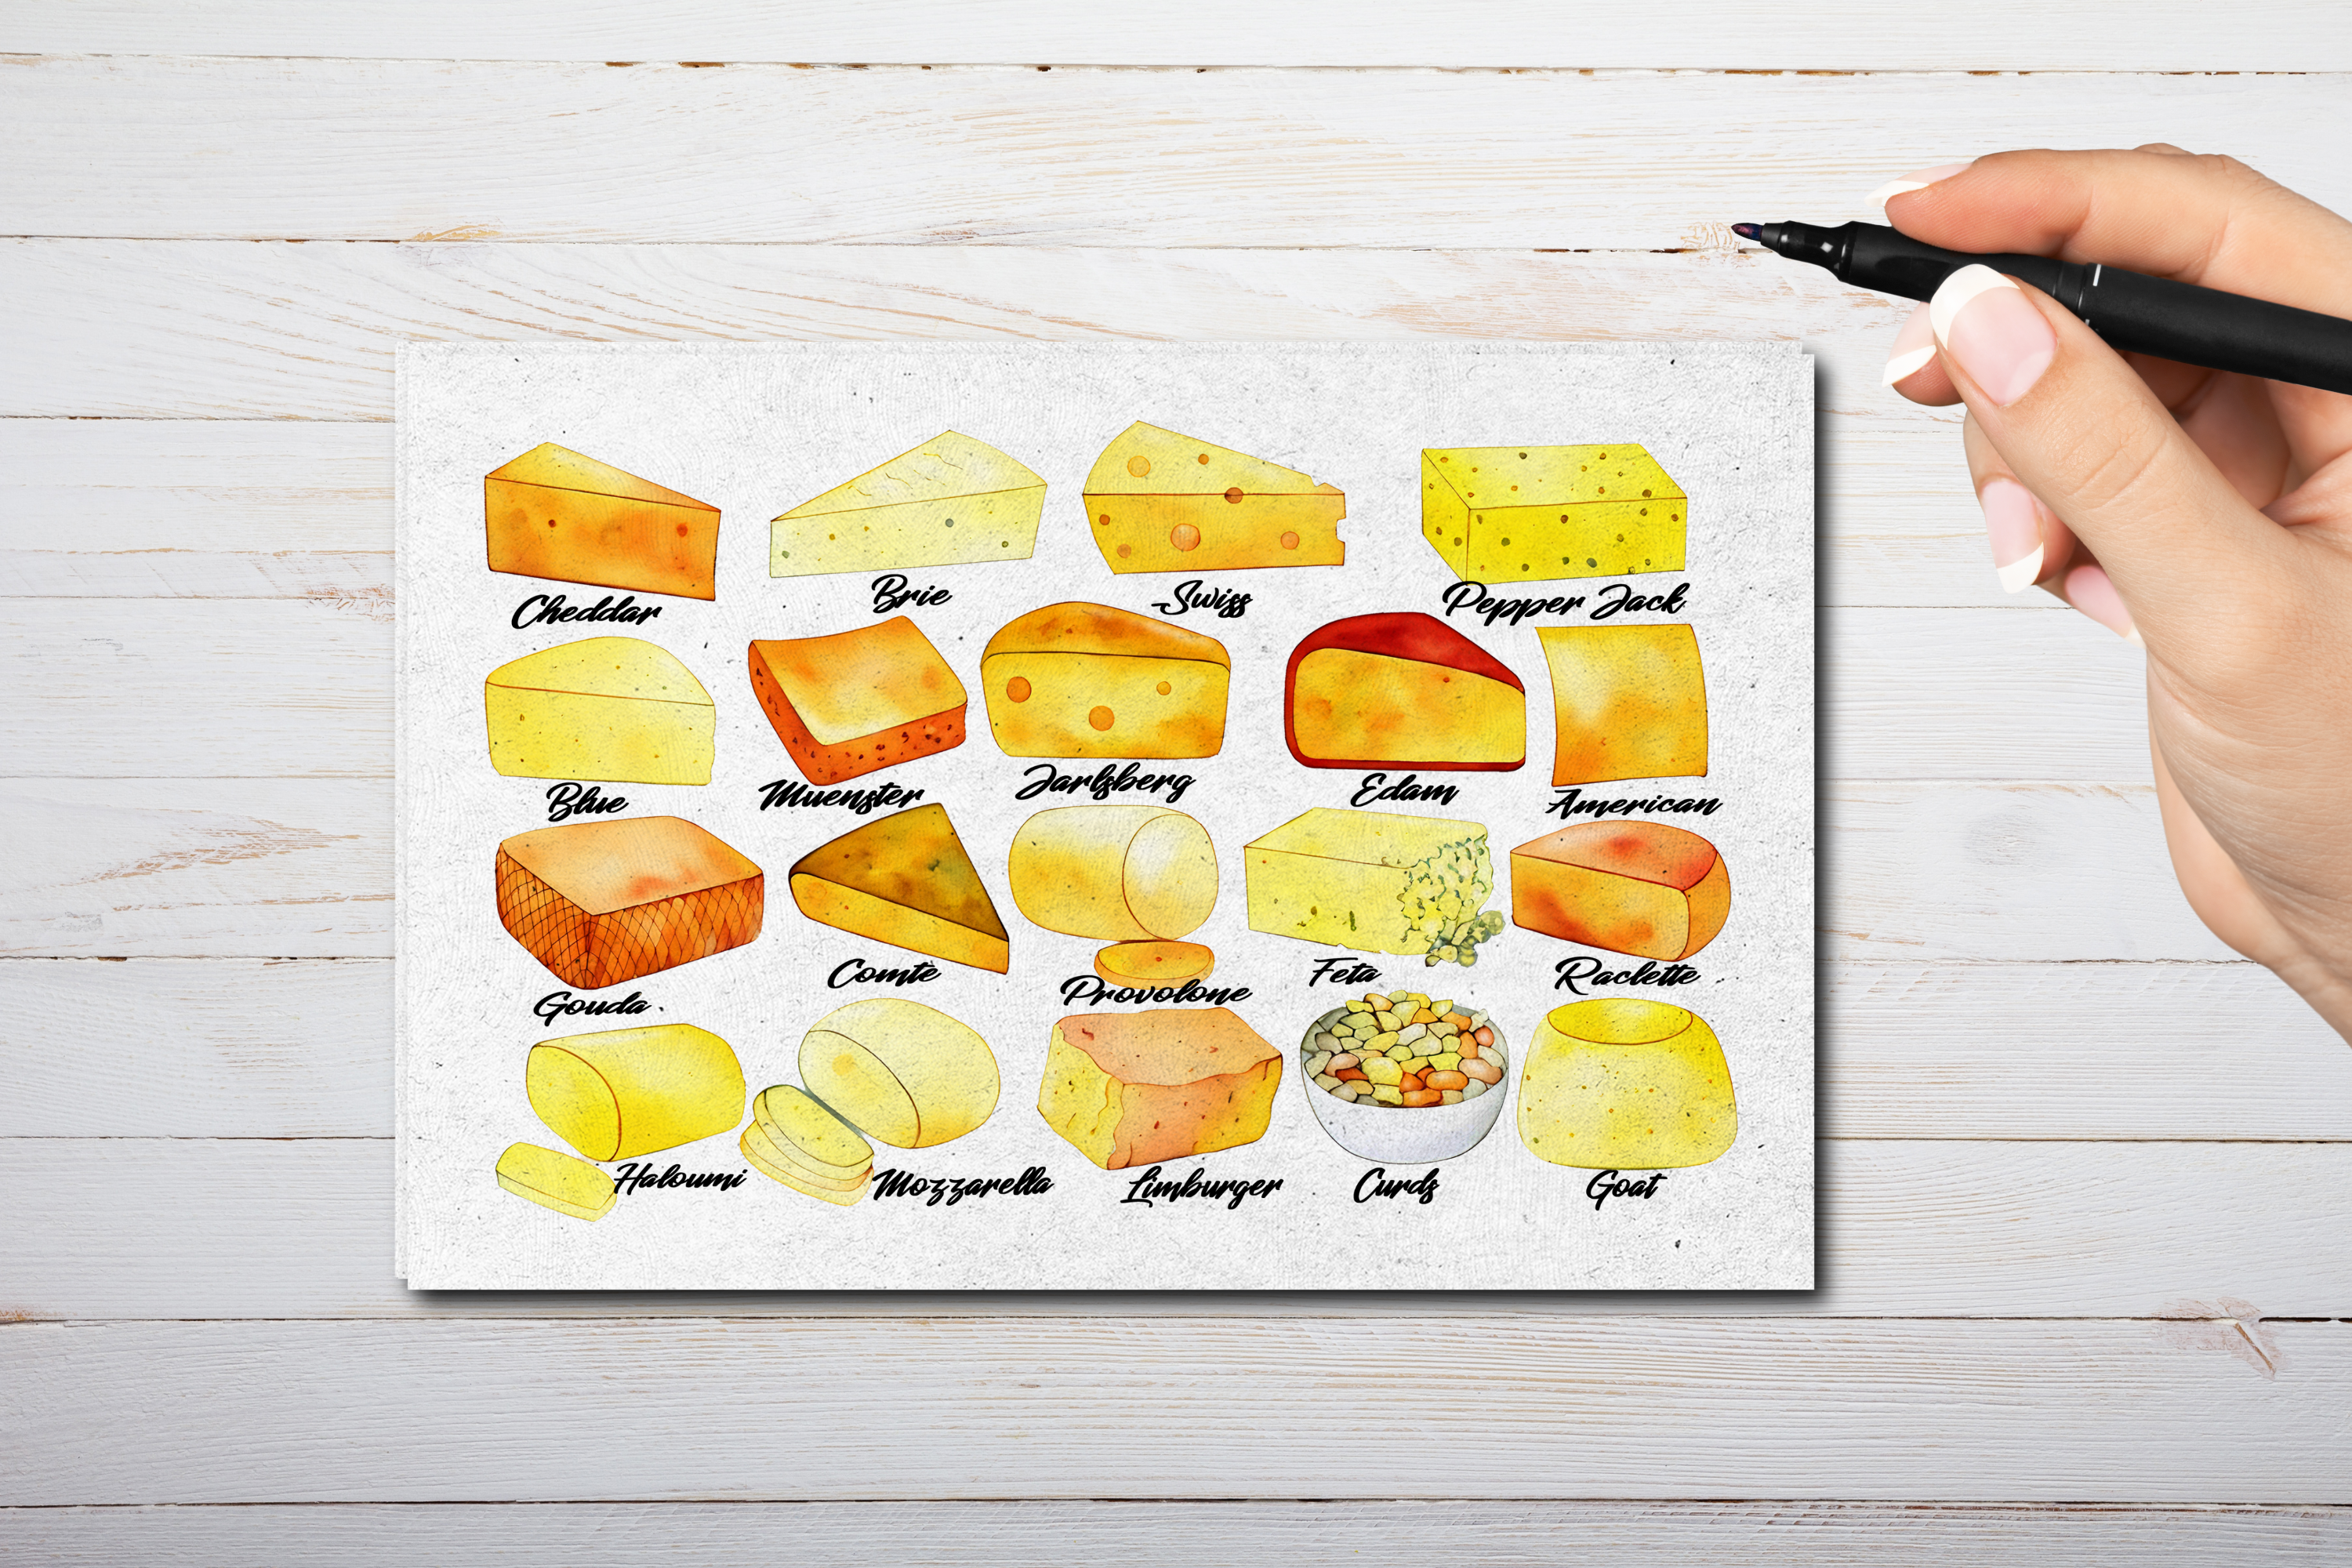 Cheddar
Brie
Swiss
Pepper Jack
Blue
Muenster
Jarlsberg
Edam
American
Gouda
Comtè
Provolone
Feta
Raclette
Haloumi
Mozzarella
Limburger
Curds
Goat